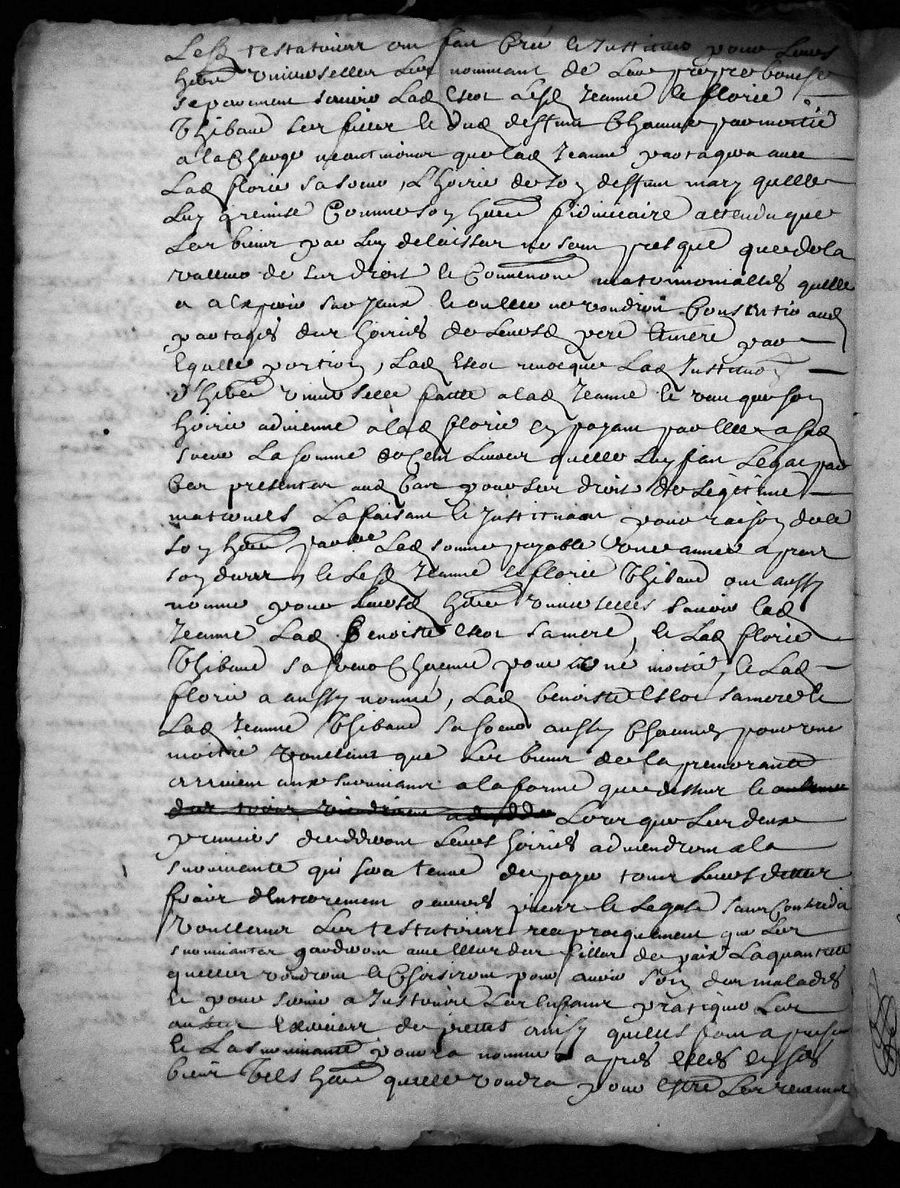 Lesd testatrices ont fait Creé et Institué pour Leurs
here universelles Les nommant de Leur propre bouche
separement scavoir Lad Escot Lesd Jeanne et florie
Thibaud ses filles et dud deffunt Chacune par moitié
a la Charge neantmoins que lad Jeanne partagera avec
Lad florie sa soeur, L'hoirie de son deffunt mary quelle
Luy remise Comme son here fiduciaire attendu que
Les biens par Luy delaissez ne sont presque que de la
valleur de ses droits et Conventions matrimonialles quelle
a a exercer sur Iceux et ou elle ne voudroit Consentir aud
partages des hoiries de Leursd pere et mere par
Egalle portion, Lad Escot revoque Lad Institution
d'here universelle faitte a lad Jeanne et veut que son
hoirie advienne a lad florie en payant par elle a sad
soeur La somme de Cent Livres quelle Luy fait Legat par
Ces presentes aud Cas pour ses droits de Legitime
maternels La faisant et Instituant pour raison de ce
son here part.re Lad somme payable une année apres
son deces, et Lesd Jeanne et florie Thibaud ont aussy
nommé pour Leursd here universelles scavoir lad
Jeanne Lad Benoiste Escot sa mere, et Lad florie
Thibaud sa soeur Chacune pour une moitié, et Lad
florie a aussy nommé, Lad benoiste Escot sa mere et
Lad Jeanne Thibaud sa soeur aussy Chacune pour une
moitié Voullant que Les biens de la premourante
arrivent aux survivans a la forme que dessus et
Lors que Les deux
premiers decedderont Leurs hoiries adviendront a la
survivante qui sera tenue de payer tous Leurs dettes
frais d'Enterrement oeuvres pieuses et Legats sans Contredit
Voullant Les testatrices reciproquement que Les
survivantes garderont avec elles des filles de pain La quantité
quelles voudront et Choisiront pour avoir soin des malades
et pour servir a Instruire Les Enfans pratiquer Les
autres Exercices de pieté ainsy quelles font a present
et La survivante pourra nommer apres elles en ses
biens tels here quelle voudra pour Estre Les revenus